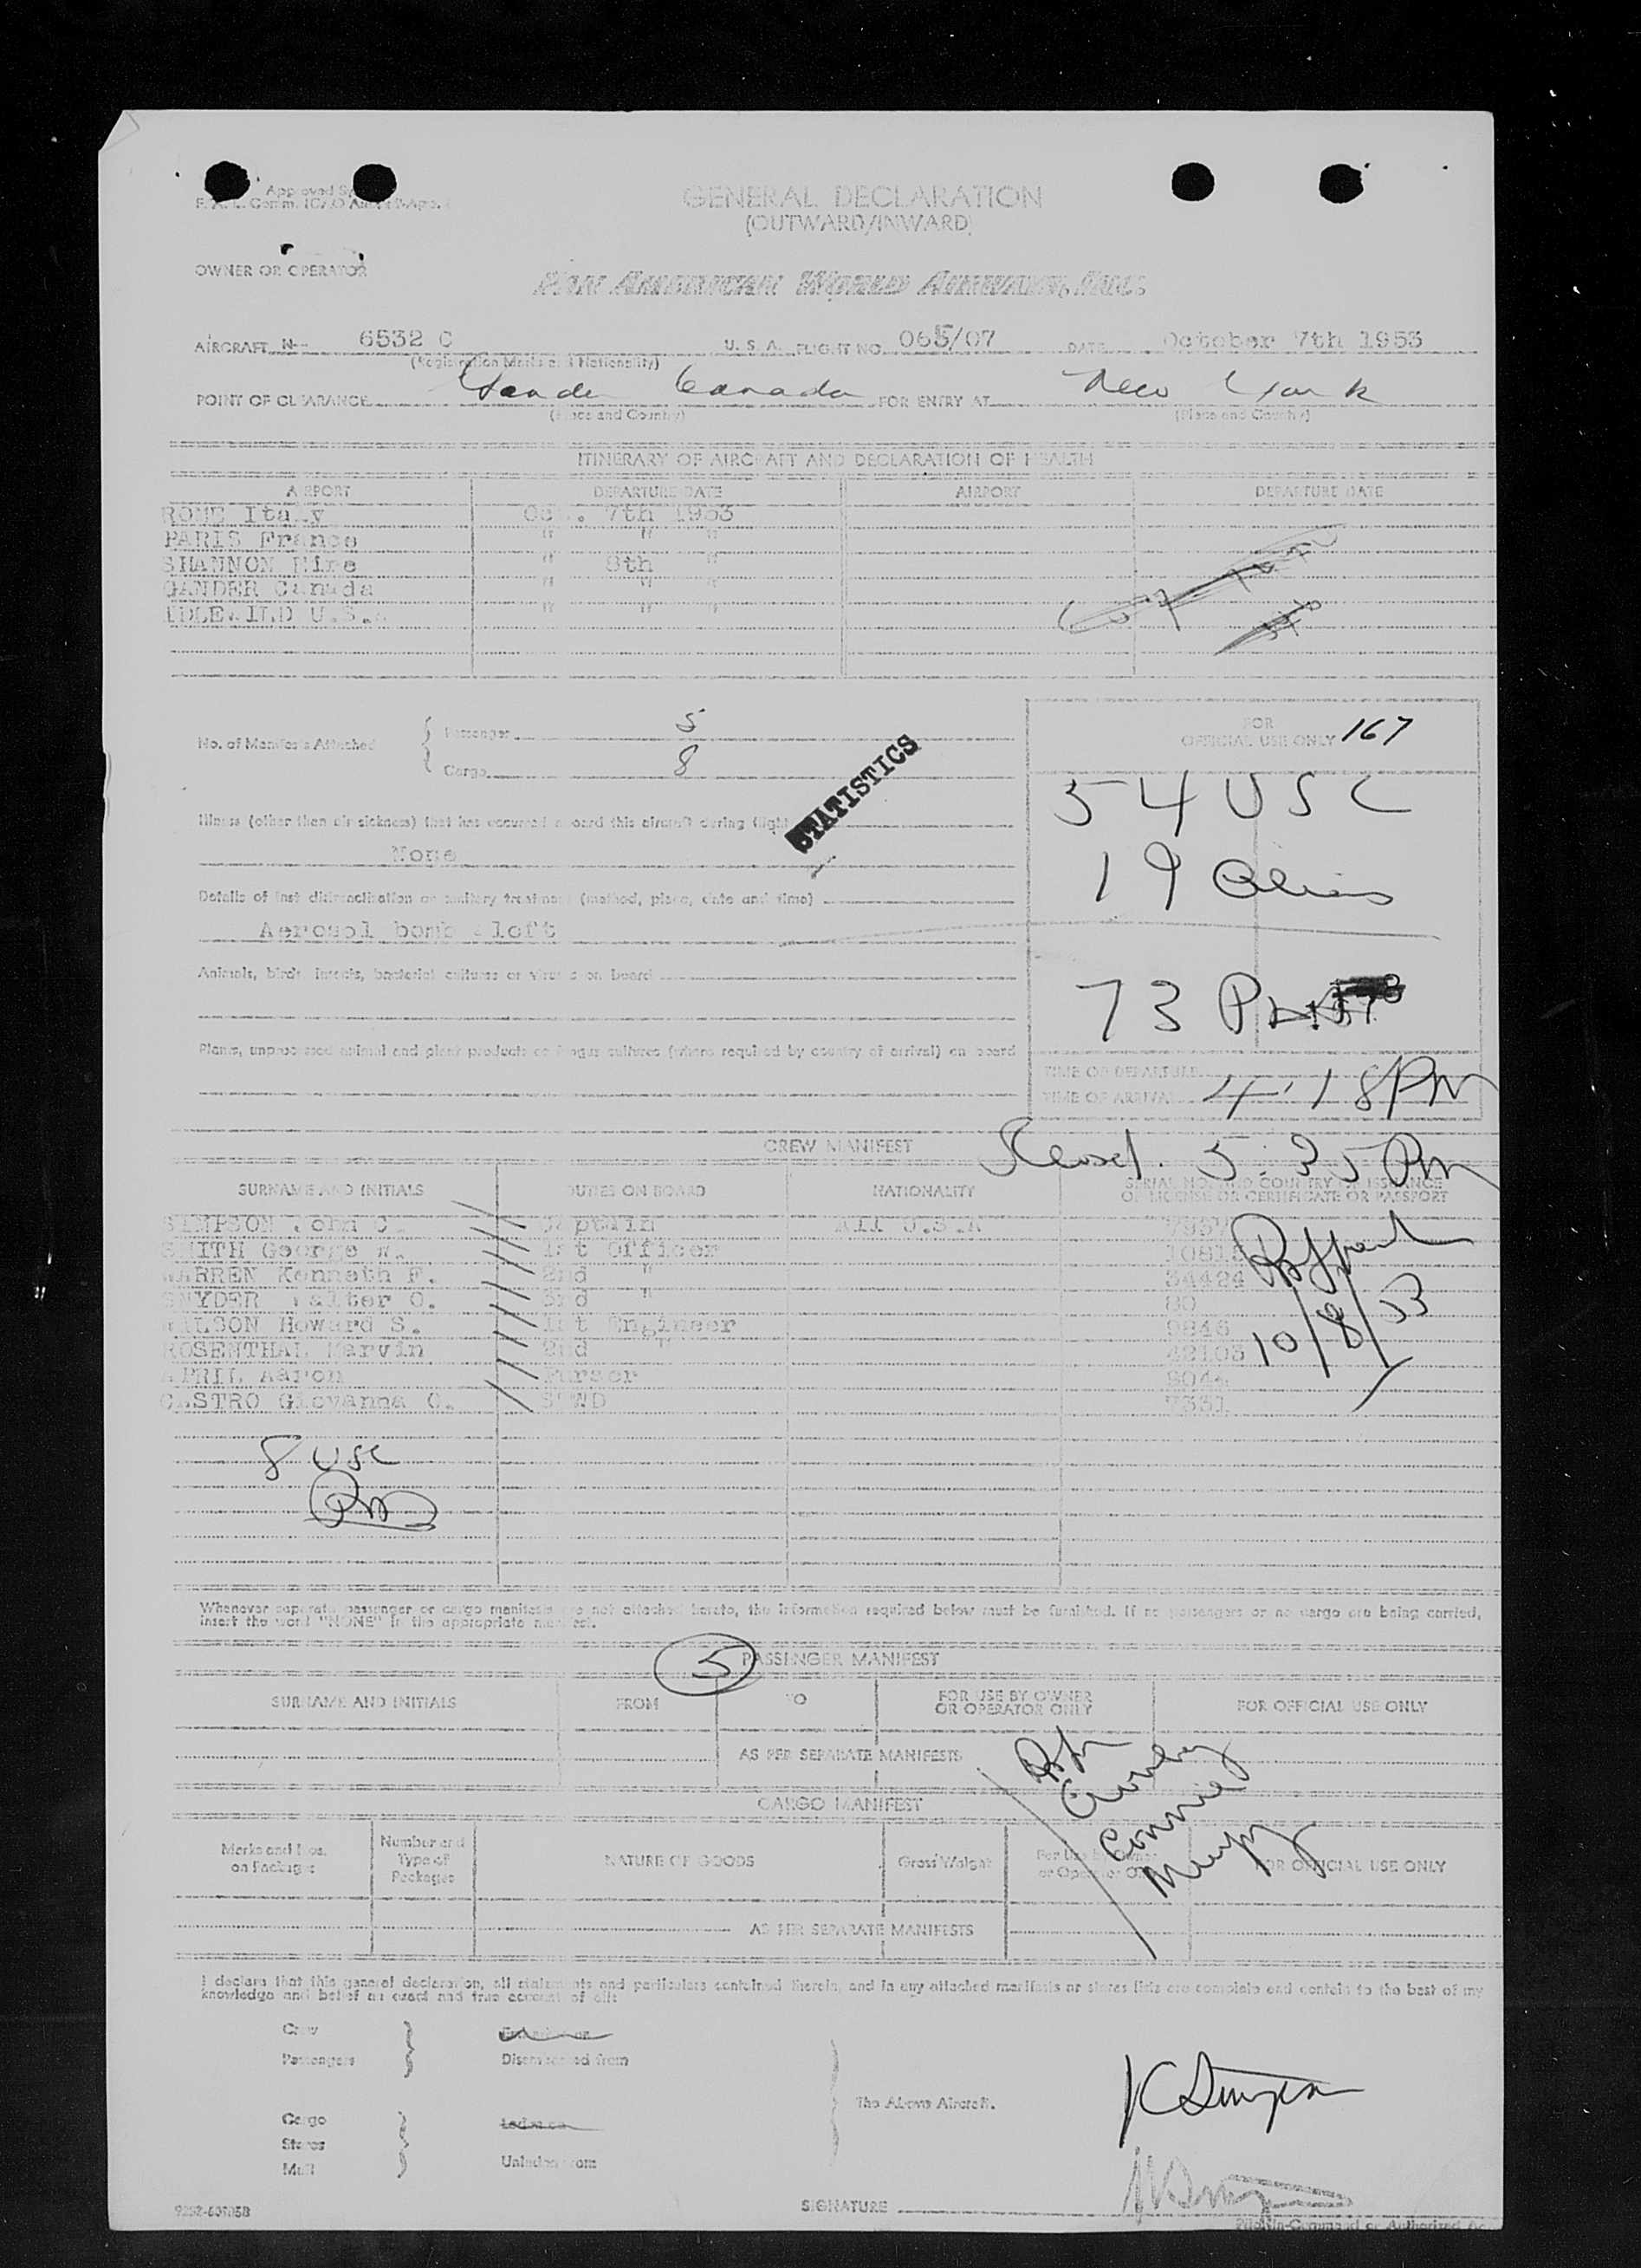 Approved
GENERAL DECLARATION
(OUTWARD/INWARD)
OWNER OR OPERATOR
PAN AMERICAN WORLD AIRWAYS, INC.
AIRCRAFT N- 6532 C U. S. A. FLIGHT NO. 065/07 DATE October 7th 1953
(Registration Marks and Nationality)
POINT OF CLEARANCE Gander Canada FOR ENTRY AT New York
(Place and Country) (Place and Country)
ITINERARY OF AIRCRAFT AND DECLARATION OF HEALTH
AIRPORT DEPARTURE DATE AIRPORT DEPARTURE DATE
ROME Italy Oct. 7th 1953
PARIS France " " "
SHANNON Eire " 8th "
GANDER Canada " " "
IDLEWILD U.S.A. " " "
No. of Manifests Attached { Passenger 5
Cargo 8
STATISTICS
FOR
OFFICIAL USE ONLY 167
54 USC
19 Aliens
73
Illness (other than air sickness) that has occurred aboard this aircraft during flight
None
Details of last disinsectization or sanitary treatment (method, place, date and time)
Aerosol bomb aloft
Animals, birds, insects, bacterial cultures or virus on board
Plants, unprocessed animal and plant products or fungus cultures (where required by country of arrival) on board
TIME OF DEPARTURE
TIME OF ARRIVAL 4:18 PM
5:35 PM
CREW MANIFEST
SURNAME AND INITIALS DUTIES ON BOARD NATIONALITY SERIAL NO. AND COUNTRY OF ISSUANCE
OF LICENSE OR CERTIFICATE OR PASSPORT
SIMPSON John C. Captain All U.S.A
SMITH George W. 1st Officer
WARREN Kenneth F. 2nd " 34424
SNYDER Walter O. 3rd " 80
WILSON Howard S. 1st Engineer 9846
ROSENTHAL Marvin 2nd " 42103
APRIL Aaron Purser
CASTRO Giovanna C. STWD 7331
10/8/53
8 USC
Whenever separate passenger or cargo manifests are not attached hereto, the information required below must be furnished. If no passengers or no cargo are being carried,
insert the word "NONE" in the appropriate manifest.
5 PASSENGER MANIFEST
SURNAME AND INITIALS FROM TO FOR USE BY OWNER
OR OPERATOR ONLY FOR OFFICIAL USE ONLY
AS PER SEPARATE MANIFESTS
CARGO MANIFEST
Marks and Nos.
on Packages Number and
Type of
Packages NATURE OF GOODS Gross Weight For Use by Owner
or Operator Only FOR OFFICIAL USE ONLY
AS PER SEPARATE MANIFESTS
I declare that this general declaration, all statements and particulars contained therein, and in any attached manifests or stores lists are complete and contain to the best of my
knowledge and belief an exact and true account of all:
Crew
Passengers Disembarked from
The Above Aircraft.
Cargo
Stores
Mail Unladen from
SIGNATURE
Pilot-in-Command or Authorized